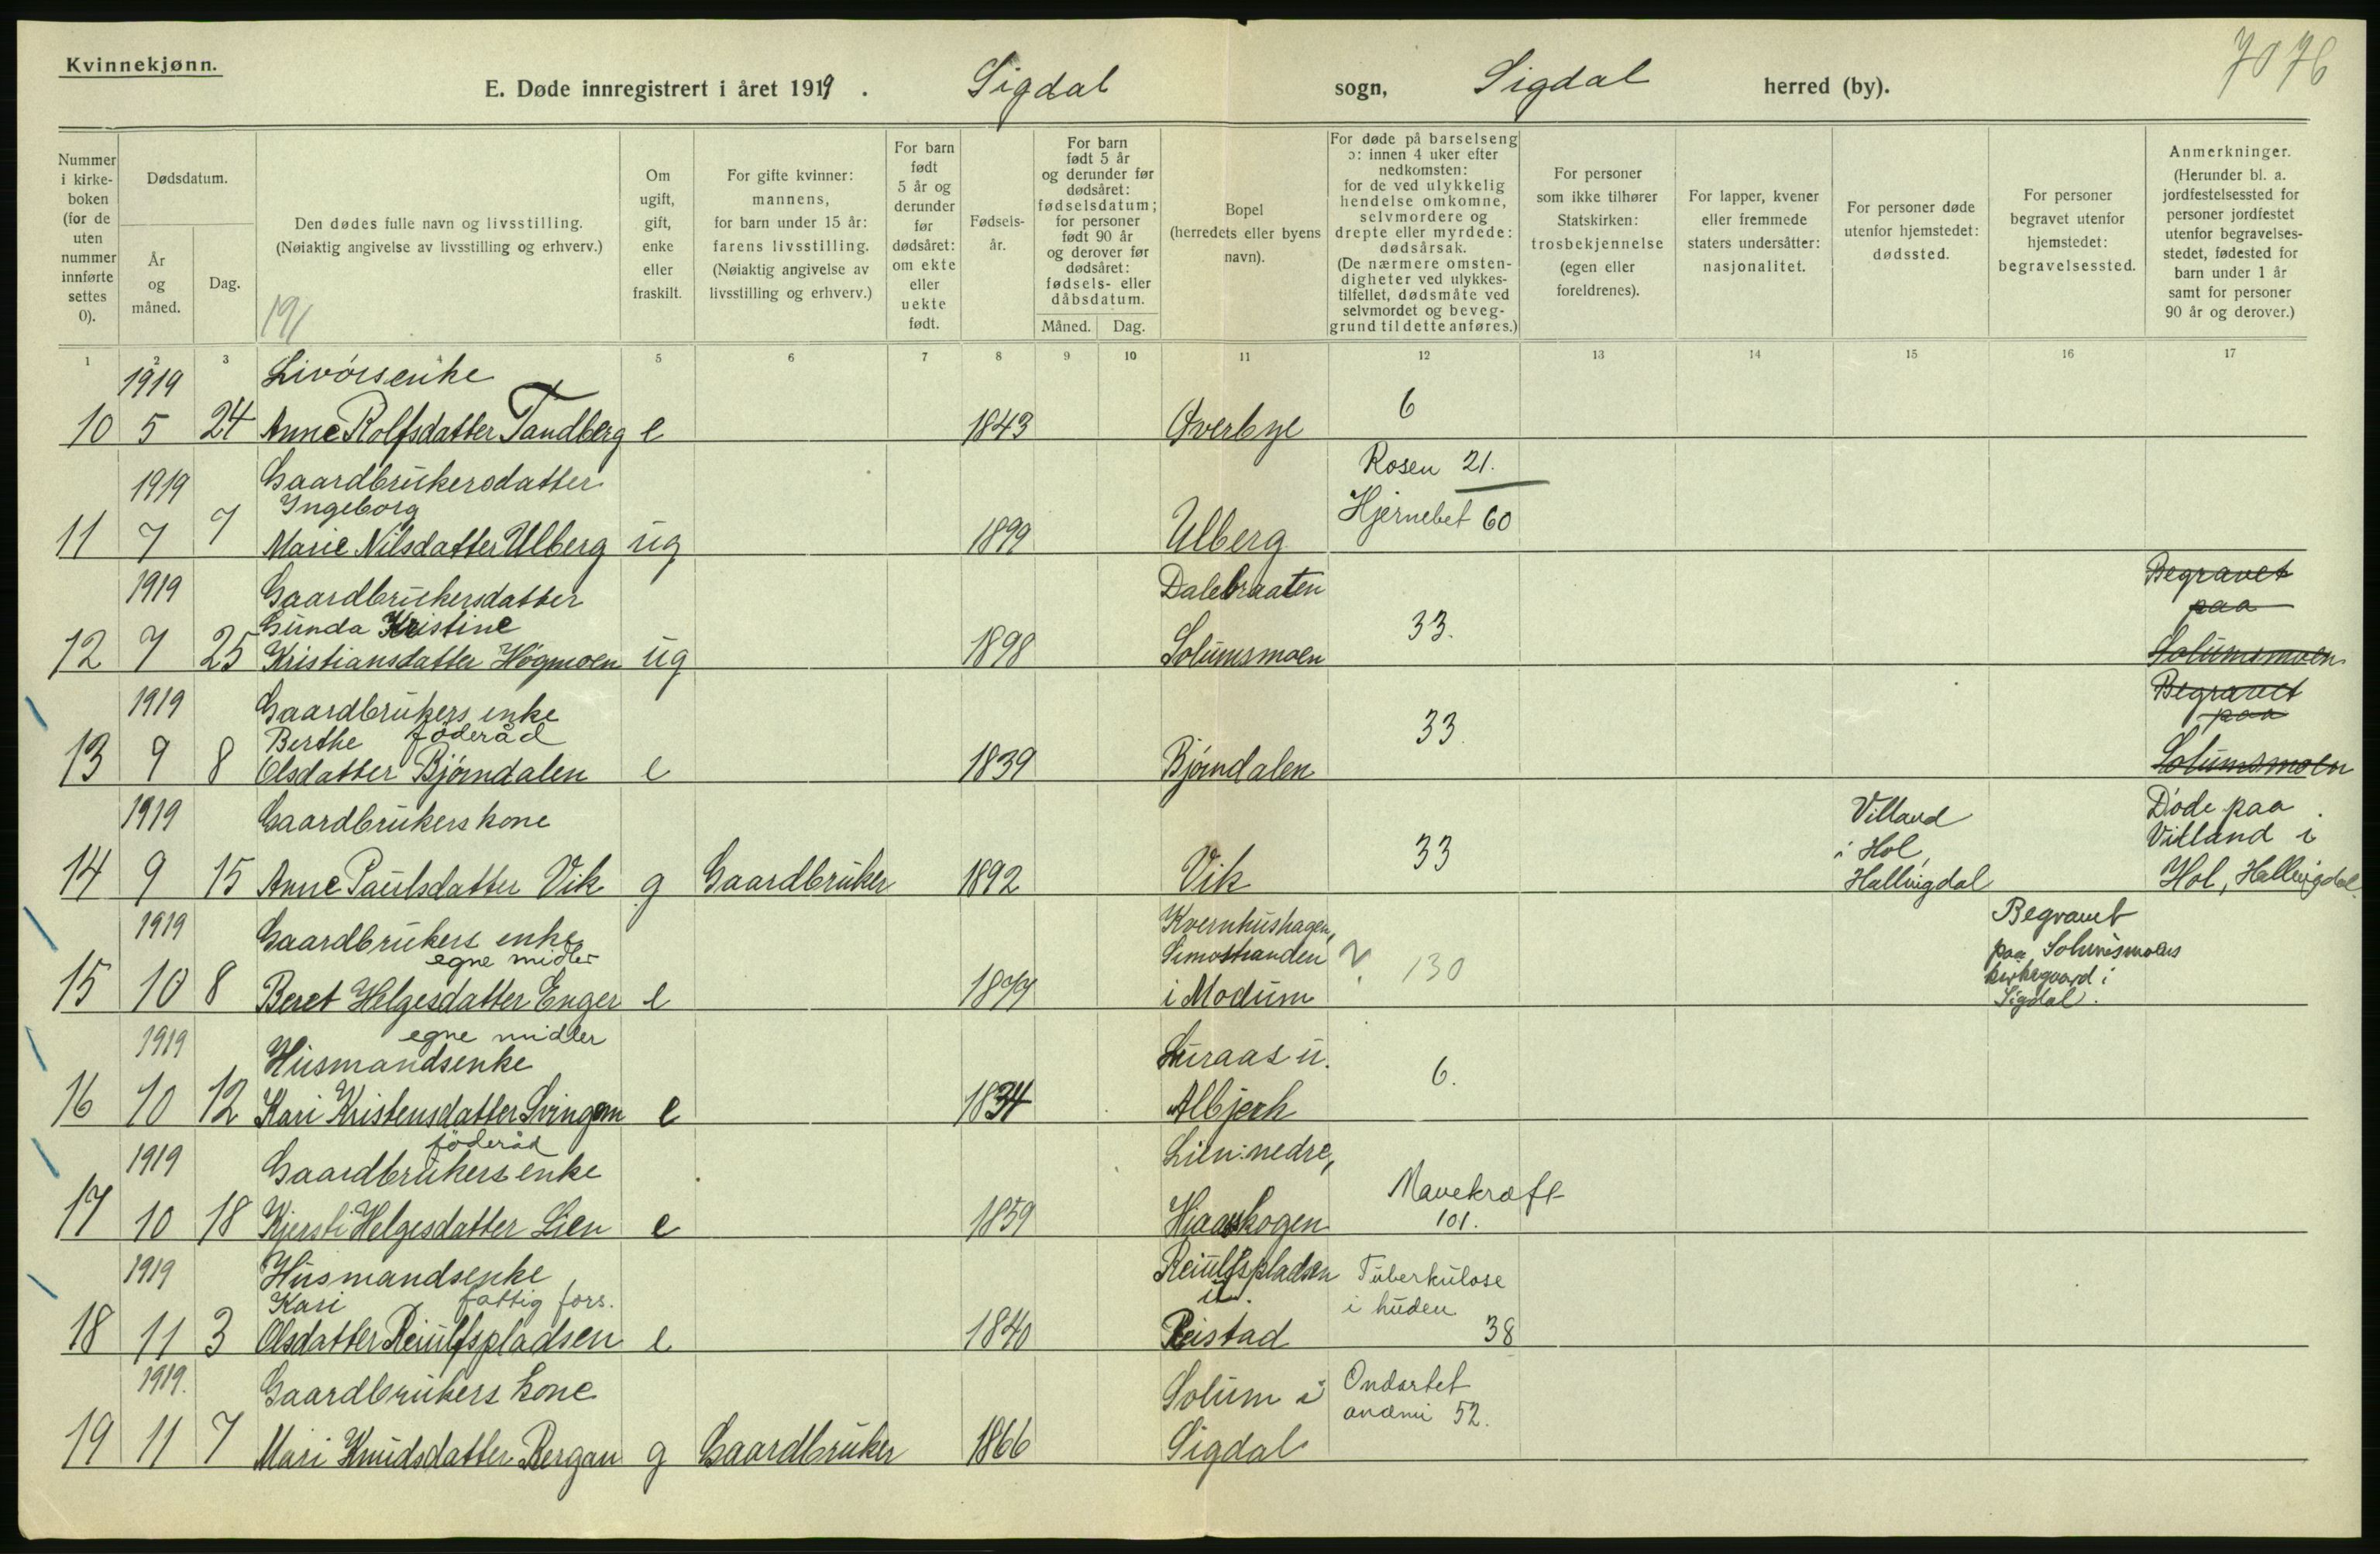 Kvinnekjønn.
7076
E. Døde innregistrert i året 1919. Sigdal sogn, Sigdal herred (by).
Nummer i kirke-boken (for de uten nummer innførte settes 0).
Dødsdatum.
År og måned.
Dag.
Den dødes fulle navn og livsstilling.
(Nøiaktig angivelse av livsstilling og erhverv.)
191
Om ugift, gift, enke eller fraskilt.
For gifte kvinner: mannens, for barn under 15 år: farens livsstilling. (Nøiaktig angivelse av livsstilling og erhverv.)
For barn født 5 år og derunder før dødsåret: om ekte eller uekte født.
Fødsels-år.
For barn født 5 år og derunder før dødsåret: fødselsdatum; for personer født 90 år og derover før dødsåret: fødsels- eller dåbsdatum.
Måned. Dag.
Bopel (herredets eller byens navn).
For døde på barselseng ɔ: innen 4 uker efter nedkomsten: for de ved ulykkelig hendelse omkomne, selvmordere og drepte eller myrdede: dødsårsak. (De nærmere omsten-digheter ved ulykkes-tilfellet, dødsmåte ved selvmordet og beveg-grund til dette anføres.)
For personer som ikke tilhører Statskirken: trosbekjennelse (egen eller foreldrenes).
For lapper, kvener eller fremmede staters undersåtter: nasjonalitet.
For personer døde utenfor hjemstedet: dødssted.
For personer begravet utenfor hjemstedet: begravelsessted.
Anmerkninger. (Herunder bl. a. jordfestelsessted for personer jordfestet utenfor begravelses-stedet, fødested for barn under 1 år samt for personer 90 år og derover.)
1 2 3 4 5 6 7 8 9 10 11 12 13 14 15 16 17
1919 Livörsenke
10 5 24 Anne Rolfsdatter Tandberg e 1843 Överbye 6
1919 Gaardbrukersdatter Rosen 21.
Ingeborg Hjernebet 60
11 7 7 Marie Nilsdatter Ulberg ug 1899 Ulberg
1919 Gaardbrukersdatter Dalebraaten Begravet
Gunda Kristine 33. paa
12 7 25 Kristiansdatter Högmoen ug 1898 Solumsmoen Solumsmoen
1919 Gaardbrukers enke Begravet
Berthe föderåd 33. paa
13 9 8 Olsdatter Björndalen e 1839 Björndalen Solumsmoen
1919 Gaardbrukers kone Villand Döde paa
33 i Hol, Villand i
14 9 15 Anne Paulsdatter Vik g Gaardbruker 1892 Vik Hallingdal Hol, Hallingdal
1919 Gaardbrukers enke Kvernhushagen, Begravet
egne midler Simostranden ? 130 paa Solumsmoens
kirkegaard i
15 10 8 Beret Helgesdatter Enger e 1877 i Modum Sigdal.
1919 egne midler
Husmandsenke Luraas u. 6.
16 10 12 Kari Kristensdatter e 1834 Albjerk
1919 föderåd Lien nedre,
Gaardbrukers enke Mavekræft
17 10 18 Kjersti Helgesdatter Lien e 1859 101.
1919 Husmandsenke Reiulfspladsen Tuberkulose
Kari fattig fors. u. i huden
18 11 3 Olsdatter Reiulfspladsen e 1840 Reistad 38
1919. Gaardbrukers kone Solum i Ondartet
anæmi 52.
19 11 7 Mari Knudsdatter Bergan g Gaardbruker 1866 Sigdal